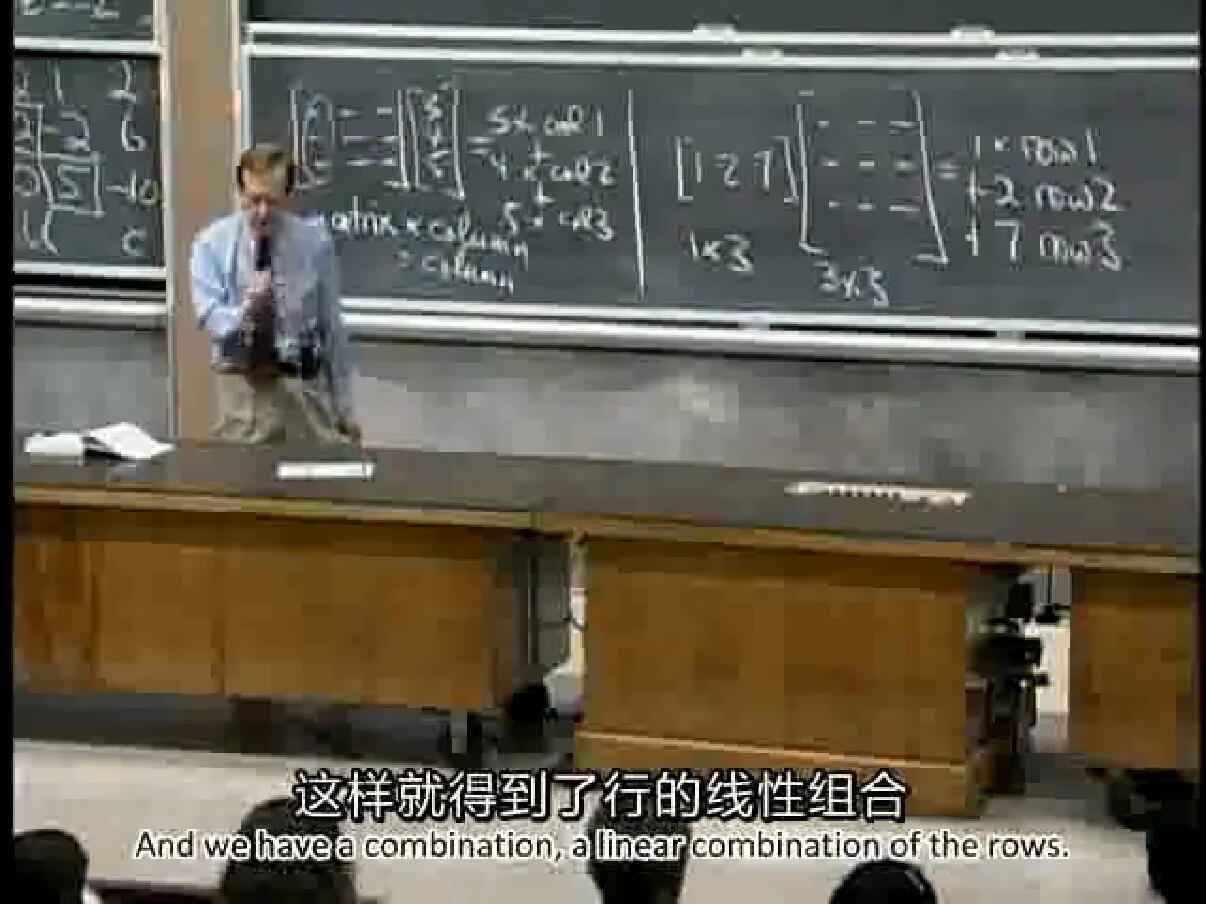 2 1 2
2 -2 6
0 5 -10
c
3
4
5
= 5 x col 1
+
4 x col 2
+
5 x col 3
matrix x column
= column
[1 2 7]
= 1 x row 1
+ 2 row 2
+ 7 row 3
1x3
3x3
这样就得到了行的线性组合
And we have a combination, a linear combination of the rows.